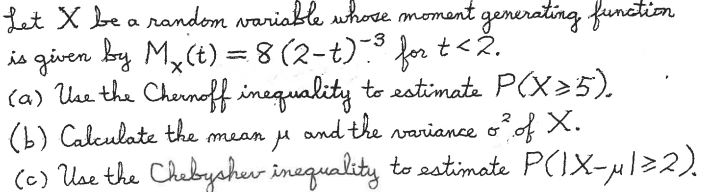 Let X be a random variable whose moment generating function
is given by Mₓ(t) = 8(2-t)⁻³ for t<2.
(a) Use the Chernoff inequality to estimate P(X≥5).
(b) Calculate the mean μ and the variance σ² of X.
(c) Use the Chebyshev inequality to estimate P(|X-μ|≥2).